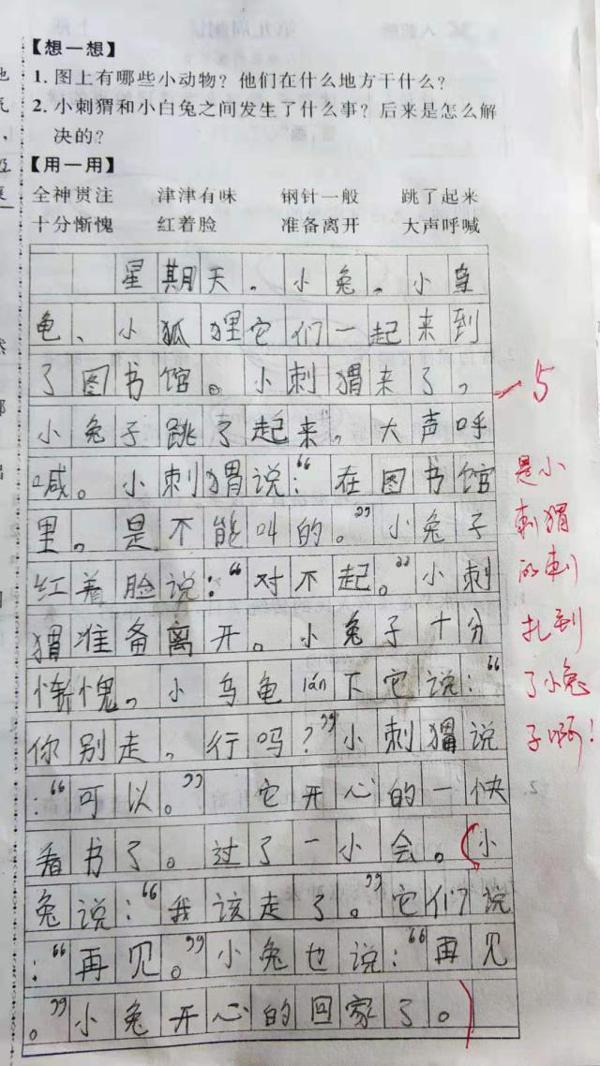 【想一想】
1. 图上有哪些小动物？他们在什么地方干什么？
2. 小刺猬和小白兔之间发生了什么事？后来是怎么解
决的？
【用一用】
全神贯注 津津有味 钢针一般 跳了起来
十分惭愧 红着脸 准备离开 大声呼喊
星期天。小兔。小乌
龟、小狐狸它们一起来到
了图书馆。小刺猬来了。
小兔子跳了起来。大声呼
喊。小刺猬说：“在图书馆
里。是不能叫的。”小兔子
红着脸说：“对不起。”小刺
猬准备离开。小兔子十分
惭愧。小乌龟lán下它说：“
你别走。行吗？”小刺猬说
：“可以。”它开心的一快
看书了。过了一小会。（小
兔说：“我该走了。”它们说
：“再见。”小兔也说：“再见
。”小兔开心的回家了。）
5
是小
刺猬
的刺
扎到
了小兔
子啊！